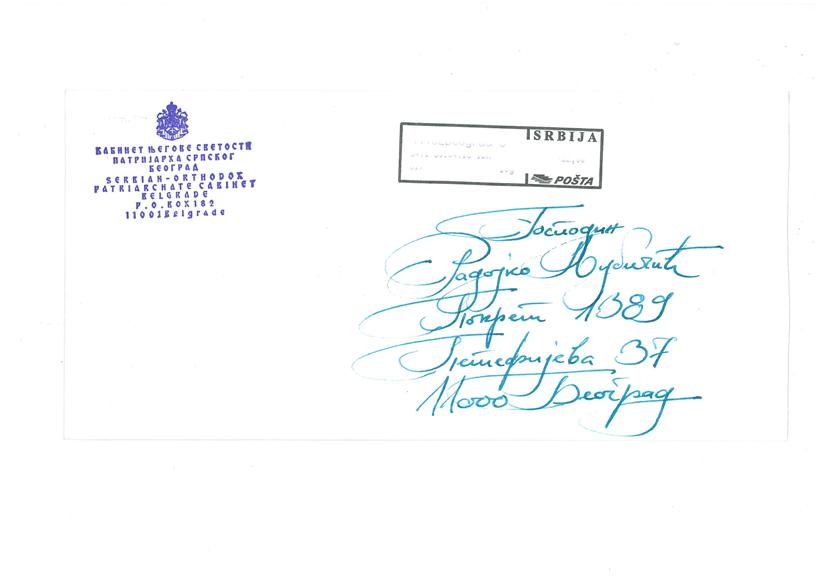 КАБИНЕТ ЊЕГОВЕ СВЕТОСТИ
ПАТРИЈАРХА СРПСКОГ
БЕОГРАД
SERBIAN-ORTHODOX
PATRIARCHATE CABINET
BELGRADE
P.O.BOX182
11001Belgrade
SRBIJA
POŠTA
Господин
Радојко Љубичић
Покрет 1389
37
11000 Београд